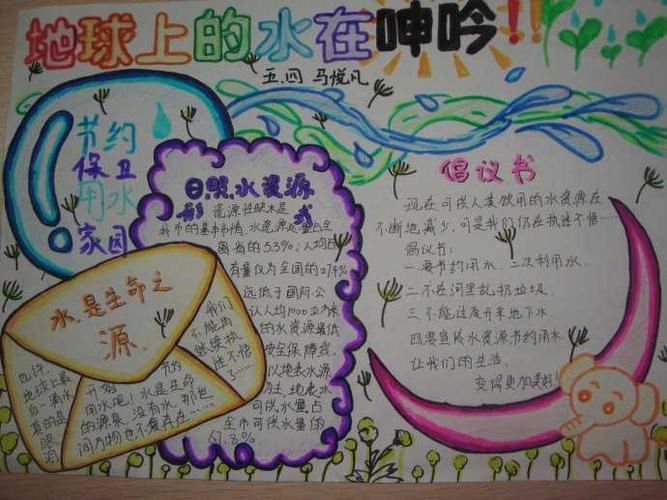 地球上的水在呻吟!!
五.四 马悦凡
节约
保卫
用水
家园
日照水资源
形 式
资源性缺水是
我市的基本市情,水资源总量占全
有量仅为全国的
远低于国际公
认人均1000立方米
的水资源最低
安全保障线。
以地表水源
为主,地表水
可供水量占
全市可供水量的
67.8%
水是生命之
源.
我们
不能再
继续执
迷不悟
了……
也许,
地球上最
后一滴水
真的是
眼泪
节约
开始
用水吧!水是生命
的源泉,没有水,那世
间万物也不复存在……
倡议书
现在可供人类饮用的水资源在
不断地减少,可是我们仍在执迷不悟……
倡议书:
一.要节约用水,二次利用水.
二.不在河里乱扔垃圾.
三.不能过度开采地下水
四.要宣传水资源节约用水
让我们的生活.
变得更加美好!